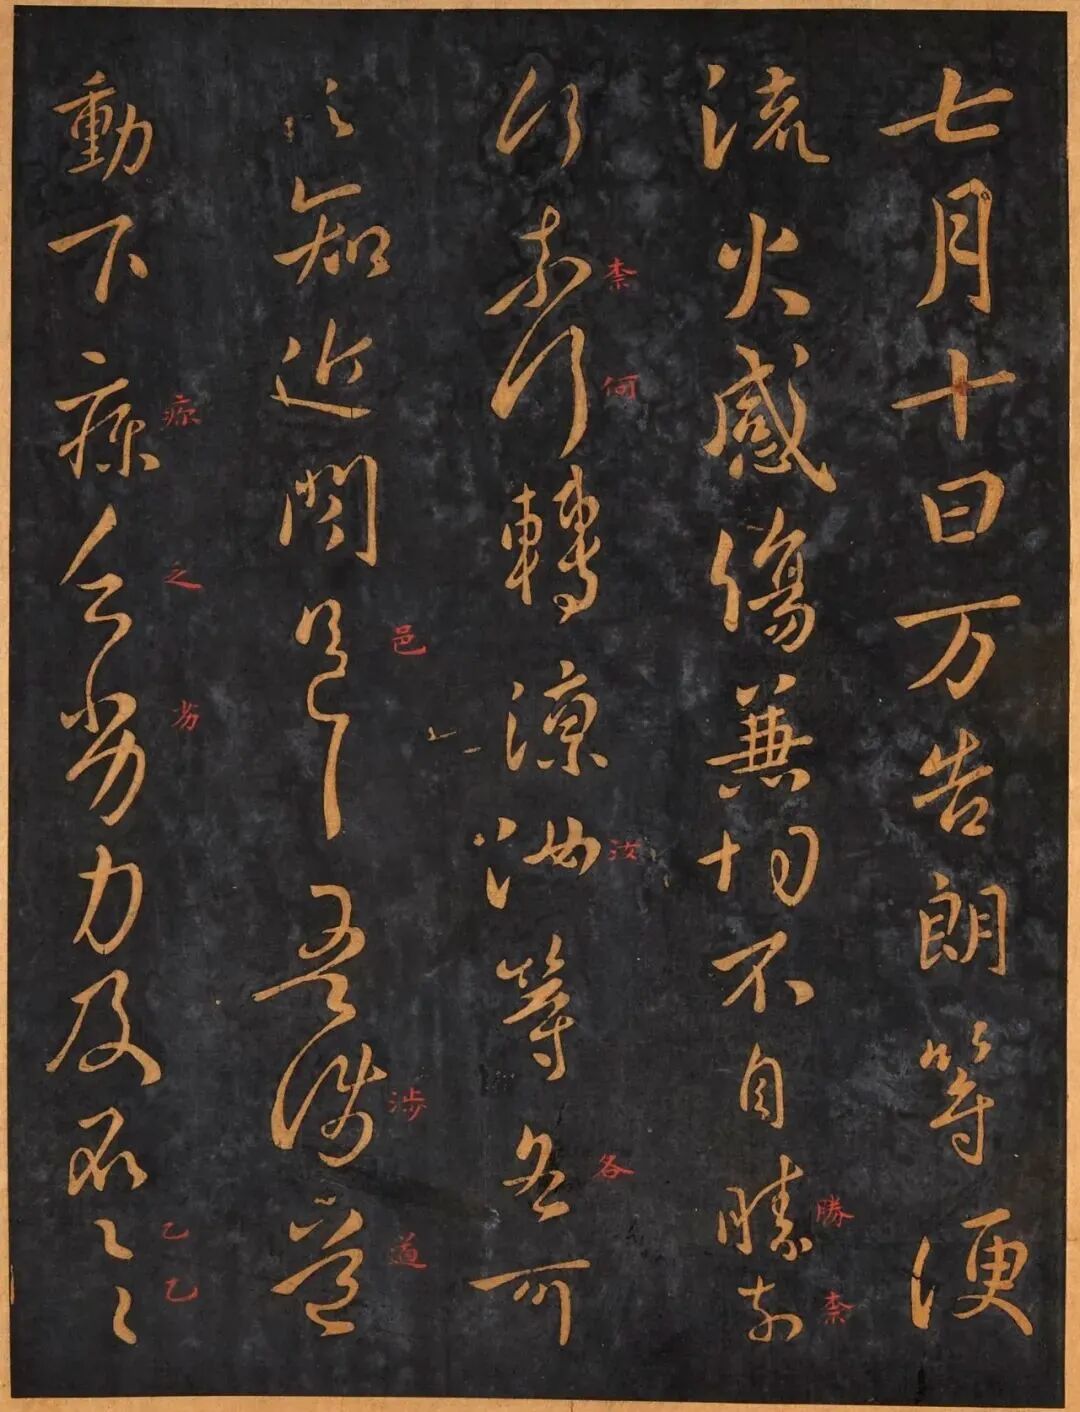 七月十日万告朗等便
流火感傷兼切不自勝奈
勝
柰
何奈何轉涼汝等各可
柰
何
汝
各
知近問邑吾涉道
邑
涉
道
動下之劣力及不乙乙
之
劣
乙
乙